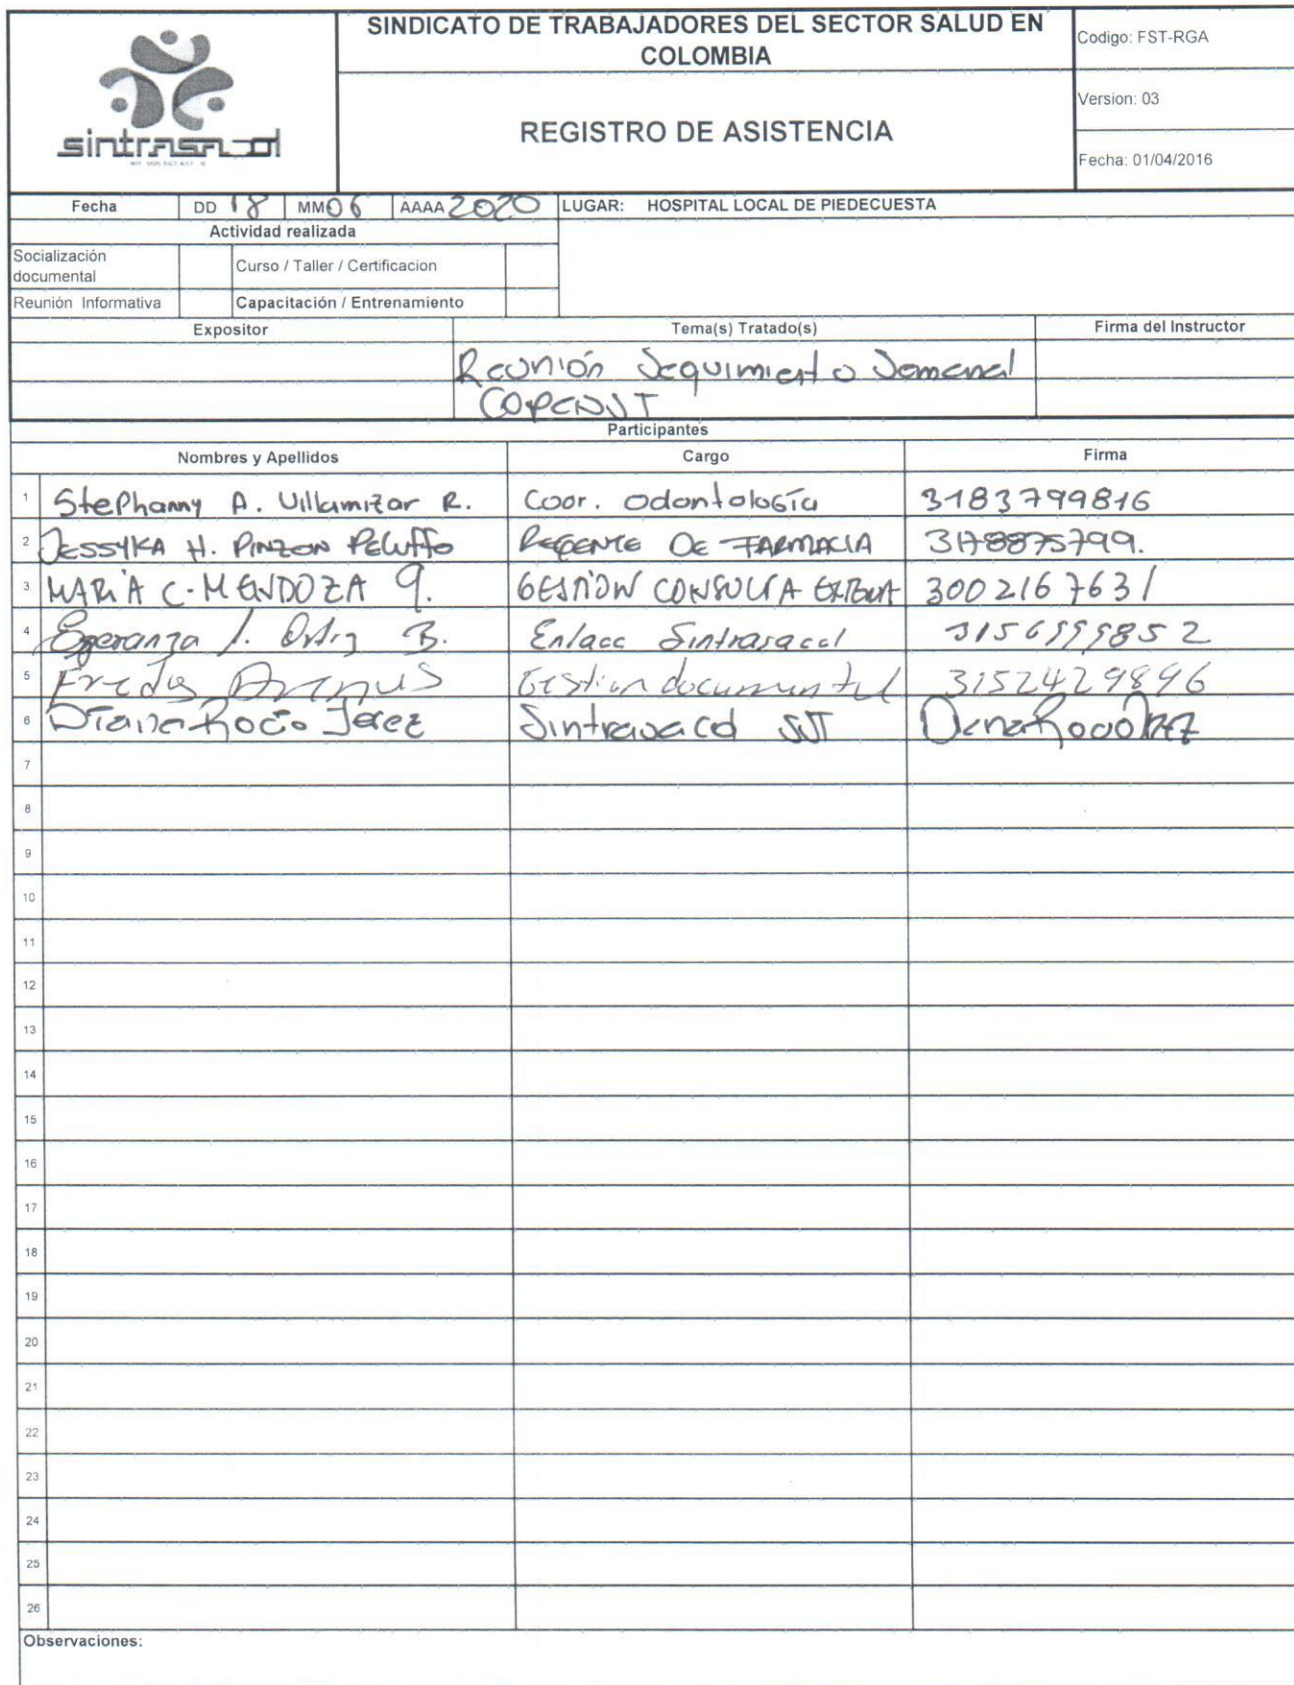 SINDICATO DE TRABAJADORES DEL SECTOR SALUD EN
COLOMBIA
Codigo: FST-RGA
Version: 03
REGISTRO DE ASISTENCIA
Fecha: 01/04/2016
sintrasacol
Fecha DD 18 MM 06 AAAA 2020 LUGAR: HOSPITAL LOCAL DE PIEDECUESTA
Actividad realizada
Socialización
documental
Curso / Taller / Certificacion
Reunión Informativa Capacitación / Entrenamiento
Expositor Tema(s) Tratado(s) Firma del Instructor
Reunión Seguimiento Semanal
COPASST
Participantes
Nombres y Apellidos Cargo Firma
1 Stephanny A. Villamizar R. Coor. Odontología 3183799816
2 JESSYKA H. PINZON PELUFFO REGENTE DE FARMACIA 3178875799.
3 MARIA C. MENDOZA G. GESTIÓN CONSULTA EXTERNA 3002167631
4 Esperanza Ortiz B. Enlace Sintrasacol 3156999852
5 Fredy Gestion documental 3152429896
6 Diana Rocío Jerez Sintrasacol SST Diana Rocio Jerez
7
8
9
10
11
12
13
14
15
16
17
18
19
20
21
22
23
24
25
26
Observaciones: